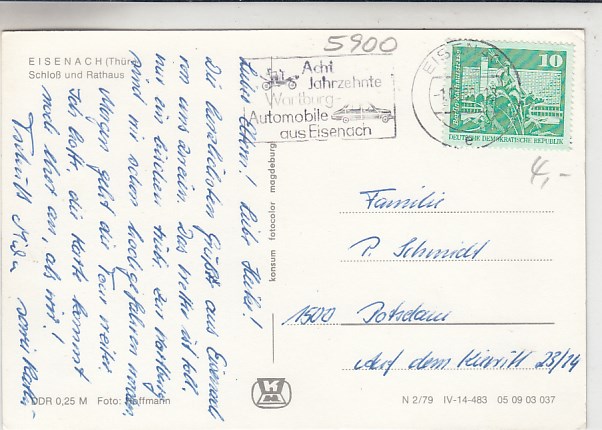 5900
EISENACH (Thür.)
Schloß und Rathaus
Acht
Jahrzehnte
Wartburg
Automobile
aus Eisenach
EISENACH
10
DEUTSCHE DEMOKRATISCHE REPUBLIK
4,-
Liebe Eltern! Liebe Heike!
Die herzlichsten Grüße aus Eisenach
von uns zweien. Das Wetter ist toll,
nur ein bischen trüb. Zur Wartburg
sind wir schon hochgefahren worden.
Morgen geht die Tour weiter.
Ich hoffe, die Karte kommt
noch eher an, als wir!
Tschüß
konsum fotocolor magdeburg
Familie
P. Schmidt
1500 Potsdam
Auf dem Kiewitt 23/14
DDR 0,25 M Foto: Hoffmann
N 2/79 IV-14-483 05 09 03 037